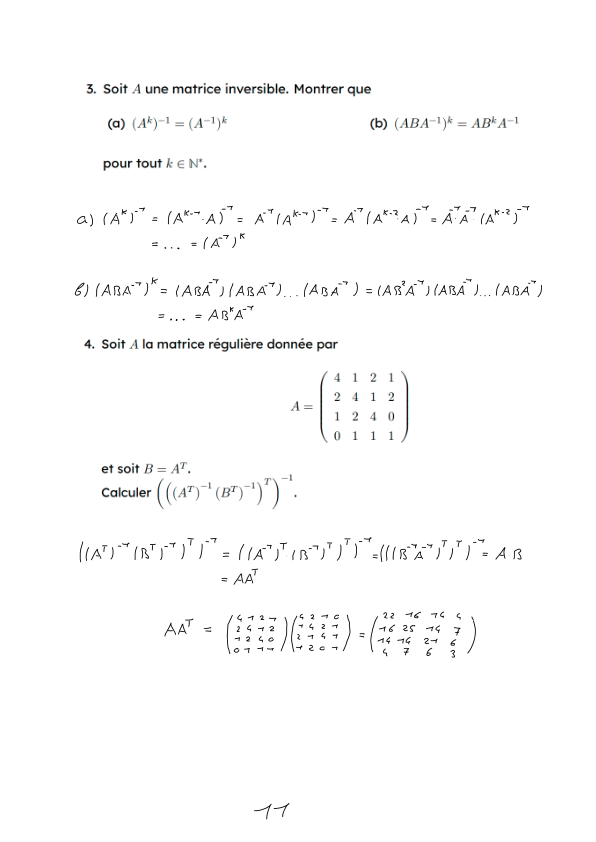 3. Soit A une matrice inversible. Montrer que
(a) (A^k)^{-1} = (A^{-1})^k (b) (ABA^{-1})^k = AB^kA^{-1}
pour tout k ∈ ℕ*.
a) (A^k)^{-1} = (A^{k-1}·A)^{-1} = A^{-1}(A^{k-1})^{-1} = A^{-1}(A^{k-2}A)^{-1} = A^{-1}·A^{-1}(A^{k-2})^{-1}
= ... = (A^{-1})^k
b) (ABA^{-1})^k = (ABA^{-1})(ABA^{-1})...(ABA^{-1}) = (AB^2A^{-1})(ABA^{-1})...(ABA^{-1})
= ... = AB^kA^{-1}
4. Soit A la matrice régulière donnée par
A = ( 4 1 2 1
2 4 1 2
1 2 4 0
0 1 1 1 )
et soit B = A^T.
Calculer (((A^T)^{-1}(B^T)^{-1})^T)^{-1}.
((A^T)^{-1}(B^T)^{-1})^T)^{-1} = ((A^{-1})^T(B^{-1})^T)^T)^{-1} = (((B^{-1}A^{-1})^T)^T)^{-1} = AB
= AA^T
AA^T = ( 4 1 2 1 ) ( 4 2 1 0 ) = ( 22 16 14 4 )
( 2 4 1 2 ) ( 1 4 2 1 ) ( 16 25 14 7 )
( 1 2 4 0 ) ( 2 1 4 1 ) ( 14 14 21 6 )
( 0 1 1 1 ) ( 1 2 0 1 ) ( 4 7 6 3 )
11